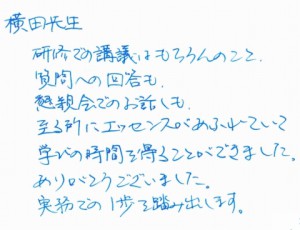 横田先生
研修での講議はもちろんのこと、
質問への回答も、
懇親会でのお話しも、
至る所にエッセンスがあふれていて
学びの時間を得ることができました。
ありがとうございました。
実務での1歩を踏み出します。